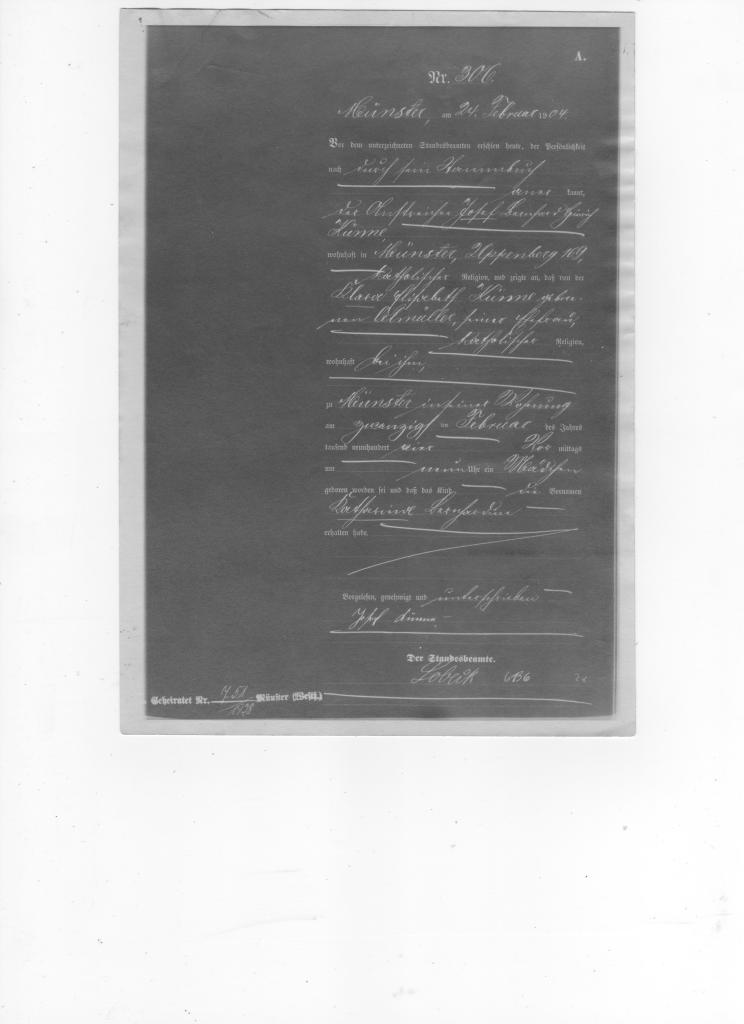 A.
Nr. 306.
Münster, am 24. Februar 1904.
Vor dem unterzeichneten Standesbeamten erschien heute, der Persönlichkeit
nach durch sein Stammbuch
aner kannt,
der Anstreicher Josef Bernhard Heinrich
Künne
wohnhaft in Münster, Uppenberg 109,
katholischer Religion, und zeigte an, daß von der
Klara Elisabeth Künne gebore-
nen Oelmüller, seiner Ehefrau,
katholischer Religion,
wohnhaft bei ihm,
zu Münster in seiner Wohnung
am zwanzigsten Februar des Jahres
tausend neunhundert vier Vor mittags
um neun Uhr ein Mädchen
geboren worden sei und daß das Kind die Vornamen
Katharina Bernhardine
erhalten habe.
Vorgelesen, genehmigt und unterschrieben
Josef Künne.
Der Standesbeamte.
Geheiratet Nr. 751/1928 Münster (Westf.)